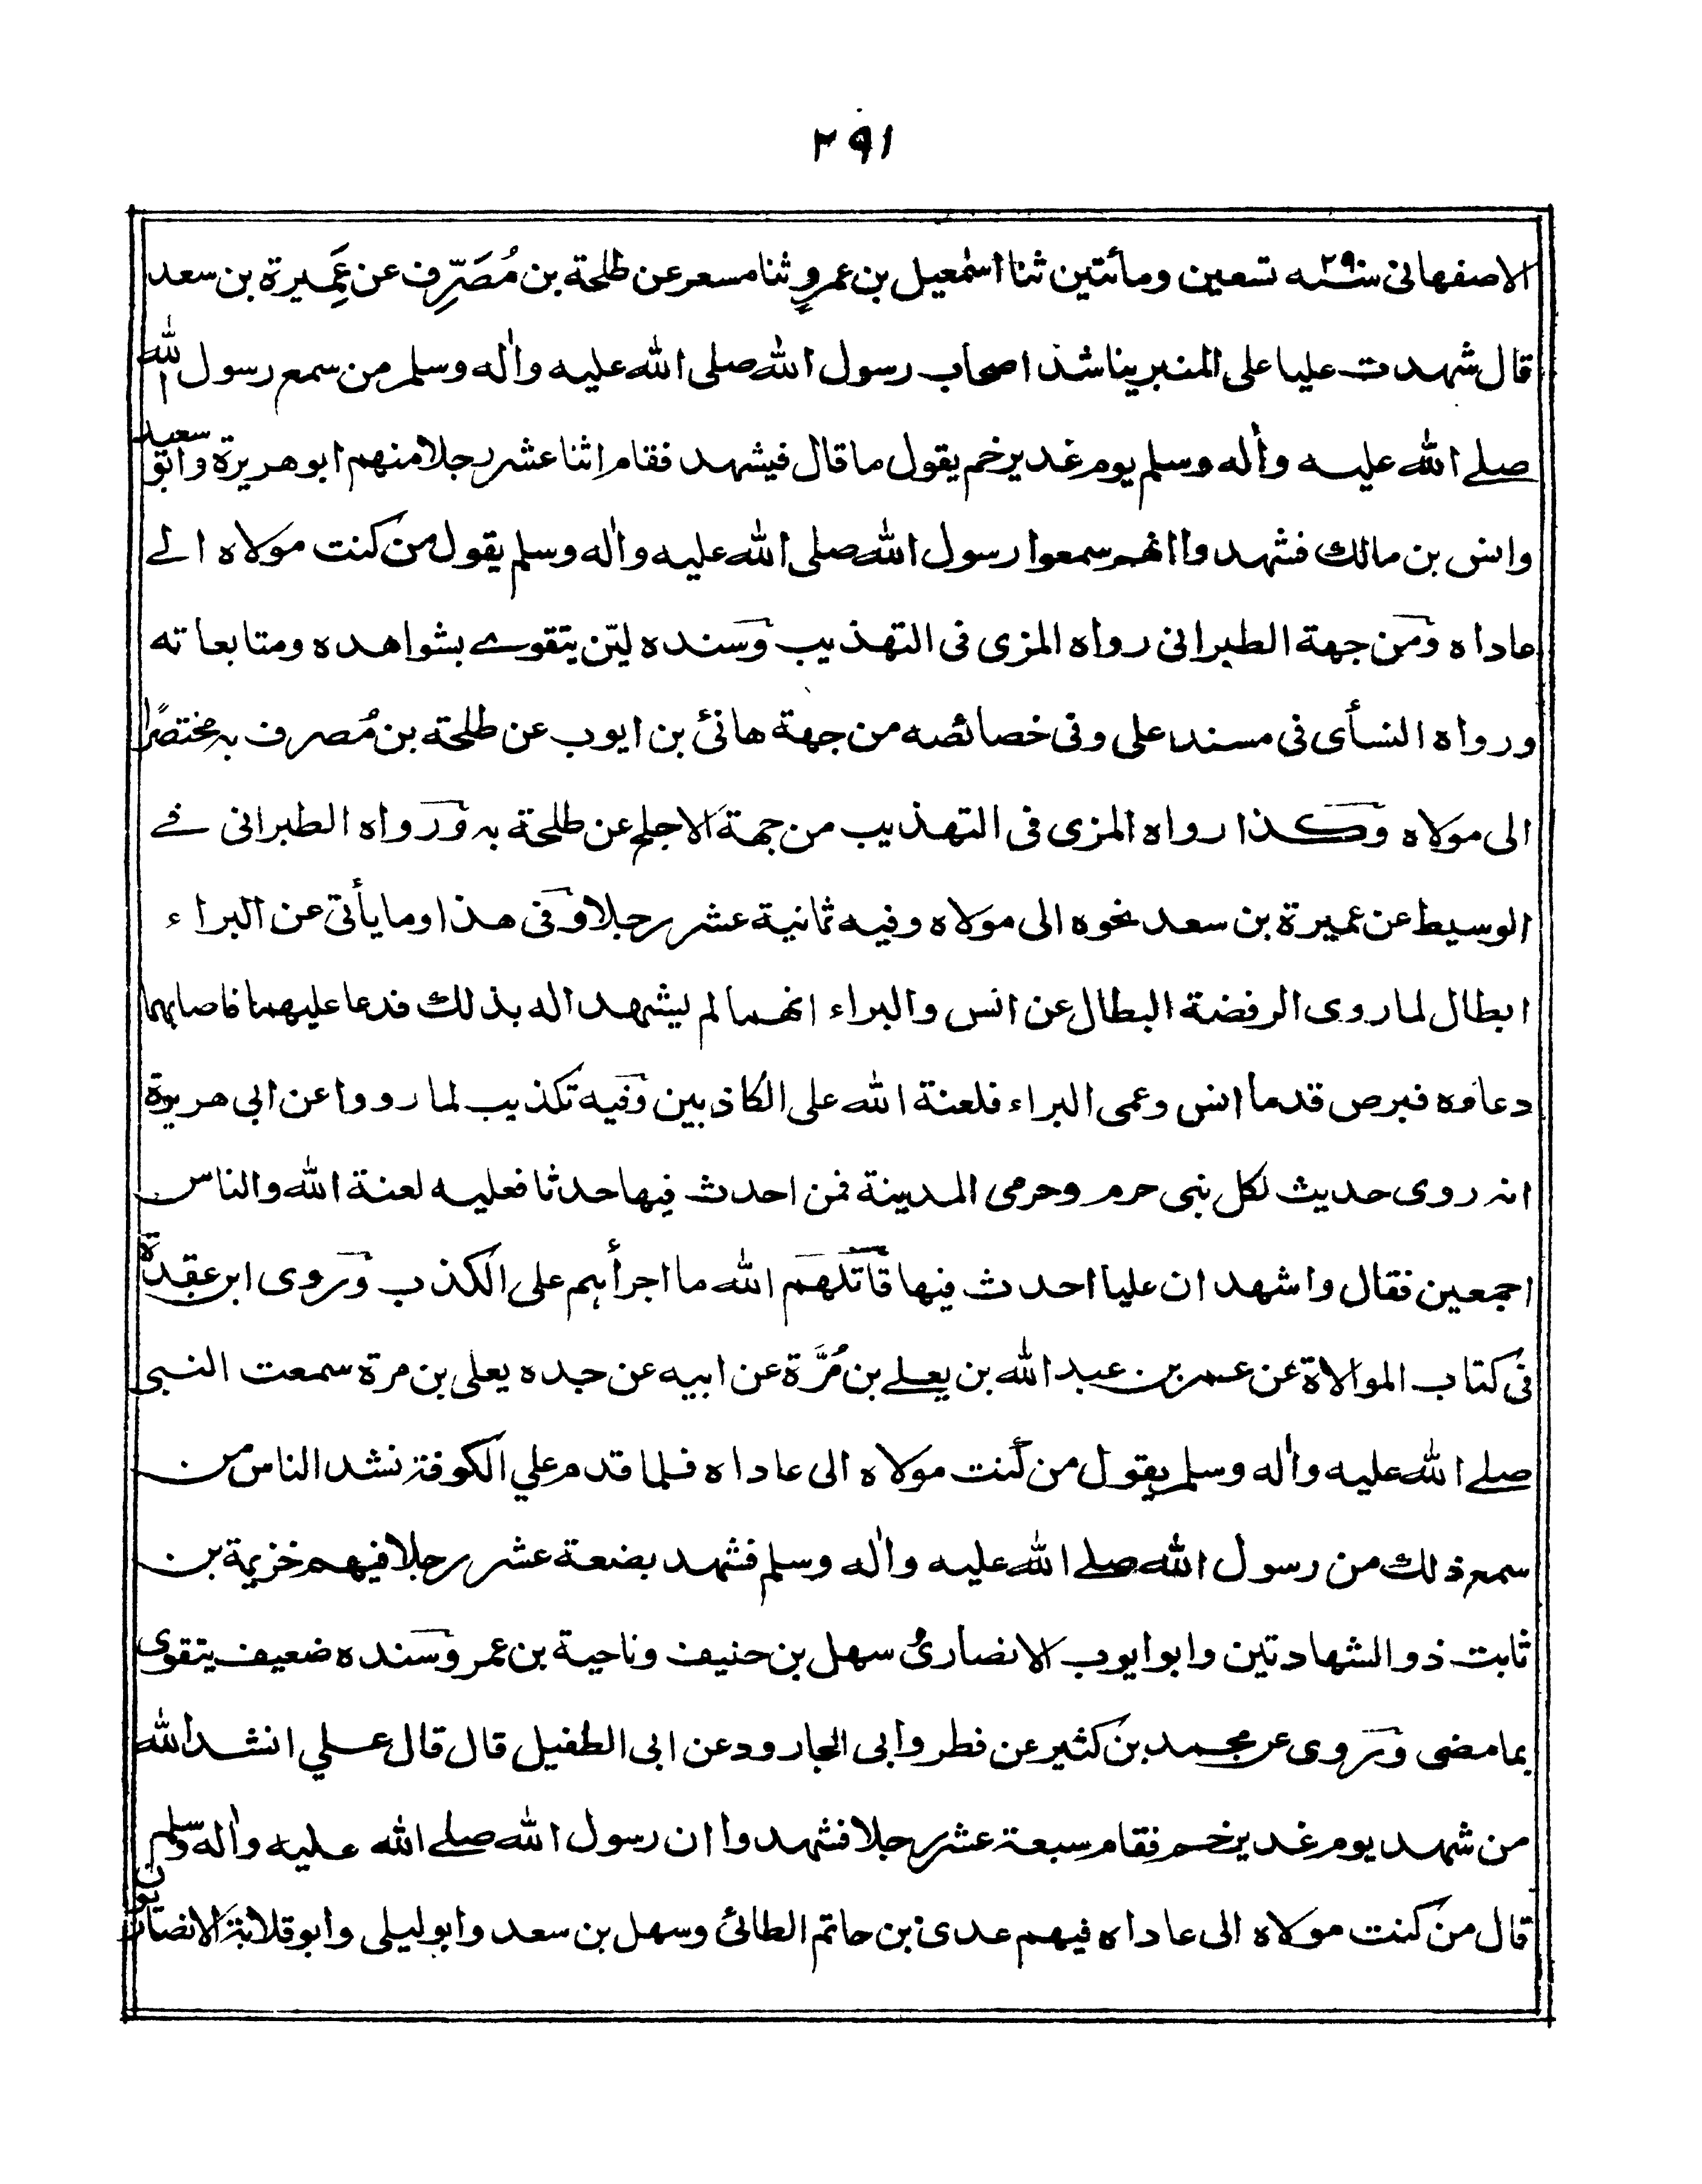 ٢٩١
الاصفهانى سنة ٢٩٠ تسعين ومأتين ثنا اسمٰعيل بن عمرٍو ثنا مسعر عن طلحة بن مُصَرِّف عن عَمِيرة بن سعد
قال شهدت عليا على المنبر يناشد اصحاب رسول الله صلى الله عليه واٰله وسلم من سمع رسول الله
صلے الله عليه واٰله وسلم يوم غدير خم يقول ما قال فيشهد فقام اثنا عشر رجلا منهم ابو هريرة وابو سعيد
وانس بن مالك فشهدوا انهم سمعوا رسول الله صلى الله عليه واٰله وسلم يقول من كنت مولاه الے
عاداه ومن جهة الطبرانى رواه المزى فى التهذيب وسنده ليّن يتقوے بشواهده ومتابعاته
ورواه النسأى فى مسند على وفى خصائصه من جهة هانئ بن ايوب عن طلحة بن مُصرف به مختصرًا
الى مولاه وكذا رواه المزى فى التهذيب من جهة الاجلح عن طلحة به ورواه الطبرانى فے
الوسيط عن عميرة بن سعد نحوه الى مولاه وفيه ثمانية عشر رجلا وفى هذا وما يأتى عن البراء
ابطال لما روى الرفضة البطال عن انس والبراء انهما لم يشهدا له بذلك فدعا عليهما فاصابهما
دعاؤه فبرص قدما انس وعمى البراء فلعنة الله على الكاذبين وفيه تكذيب لما رووا عن ابى هريرة
انه روى حديث لكل نبى حرم وحرمى المدينة فمن احدث فيها حدثا فعليه لعنة الله والناس
اجمعين فقال واشهد ان عليا احدث فيها قاتلهم الله ما اجرأهم على الكذب وروى ابن عقدة
فى كتاب الموالاة عن عمر بن عبد الله بن يعلے بن مُرَّة عن ابيه عن جده يعلى بن مرة سمعت النبى
صلے الله عليه واٰله وسلم يقول من كنت مولاه الى عاداه فلما قدم علي الكوفة نشد الناس من
سمع ذلك من رسول الله صلے الله عليه واٰله وسلم فشهد بضعة عشر رجلا فيهم خزيمة بن
ثابت ذو الشهادتين وابو ايوب الانصارى سهل بن حنيف وناحية بن عمر وسنده ضعيف يتقوى
بما مضى وروى عن محمد بن كثير عن فطر وابى الجارود عن ابى الطفيل قال قال علي انشد الله
من شهد يوم غدير خم فقام سبعة عشر رجلا فشهدوا ان رسول الله صلے الله عليه واٰله وسلم
قال من كنت مولاه الى عاداه فيهم عدى بن حاتم الطائى وسهل بن سعد وابو ليلى وابو قلابة الانصاريون